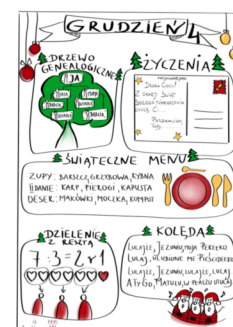 GRUDZIEŃ 4
DRZEWO
GENEALOGICZNE
JA
ŻYCZENIA
DROGA CIOCIU!
Z OKAZJI ŚWIĄT
BOŻEGO NARODZENIA
ŻYCZĘ CI...
ŚWIĄTECZNE MENU
ZUPY: BARSZCZ, GRZYBOWA, RYBNA
II DANIE: KARP, PIEROGI, KAPUSTA
DESER: MAKÓWKI, MOCZKA, KOMPOT
DZIELENIE
Z RESZTĄ
7:3=2 r1
KOLĘDA
LULAJŻE, JEZUNIU, MOJA PEREŁKO
LULAJ, ULUBIONE ME PIEŚCIDEŁKO
LULAJŻE, JEZUNIU, LULAJŻE, LULAJ
A TY GO, MATULU, W PŁACZU UTULAJ